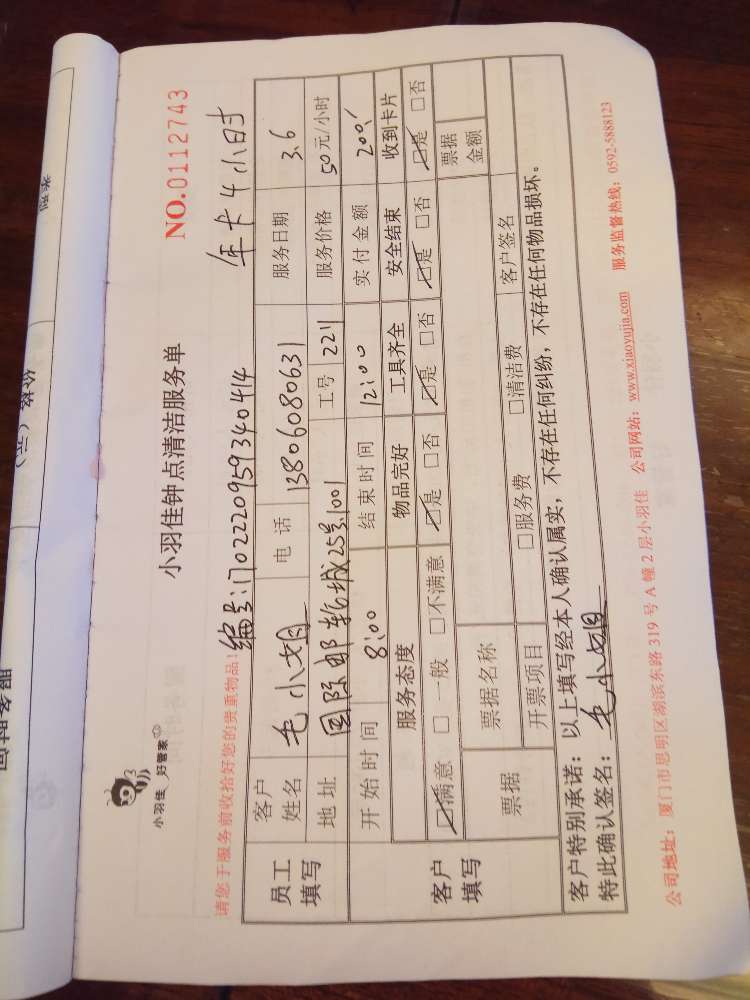 小羽佳 好管家
小羽佳钟点清洁服务单
NO.0112743
请您于服务前收拾好您的贵重物品!
编号:门02220959340414 年卡4小时
员工填写 客户姓名 毛小姐 电话 13806080631 服务日期 3.6
地址 国际邮轮城25号1001 工号 2211 服务价格 50元/小时
开始时间 8:00 结束时间 12:00 实付金额 200
客户填写 服务态度 物品完好 工具齐全 安全结束 收到卡片
☑满意 □一般 □不满意 ☑是 □否 ☑是 □否 ☑是 □否 ☑是 □否
票据 票据名称 票据金额
开票项目 □服务费 □清洁费 客户签名
客户特别承诺:以上填写经本人确认属实,不存在任何纠纷,不存在任何物品损坏。
特此确认签名:毛小姐
公司地址:厦门市思明区湖滨东路 319 号 A 幢 2 层小羽佳 公司网站:www.xiaoyujia.com 服务监督热线:0592-5888123